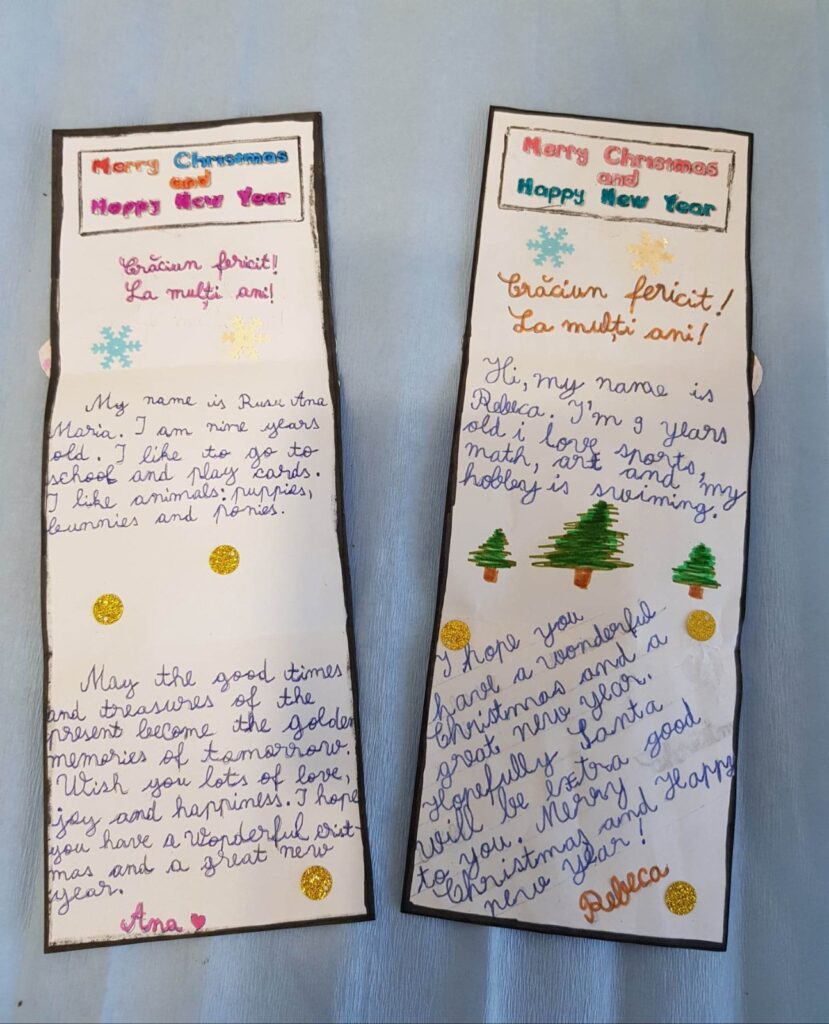 Merry Christmas
and
Happy New Year
Crăciun fericit!
La mulți ani!
My name is Rusu Ana
Maria. I am nine years
old. I like to go to
school and play cards.
I like animals: puppies,
bunnies and ponies.
May the good times
and treasures of the
present become the golden
memories of tomorrow.
Wish you lots of love,
joy and happiness. I hope
you have a wonderful crist-
mas and a great new
year.
Ana
Merry Christmas
and
Happy New Year
Crăciun fericit!
La mulți ani!
Hi, my name is
Rebeca. I'm 9 years
old i love sports,
math, art and my
hobbey is swiming.
I hope you
have a wonderful
Christmas and a
great new year.
Hopefully Santa
will be extra good
to you. Merry
Christmas and Happy
new year!
Rebeca